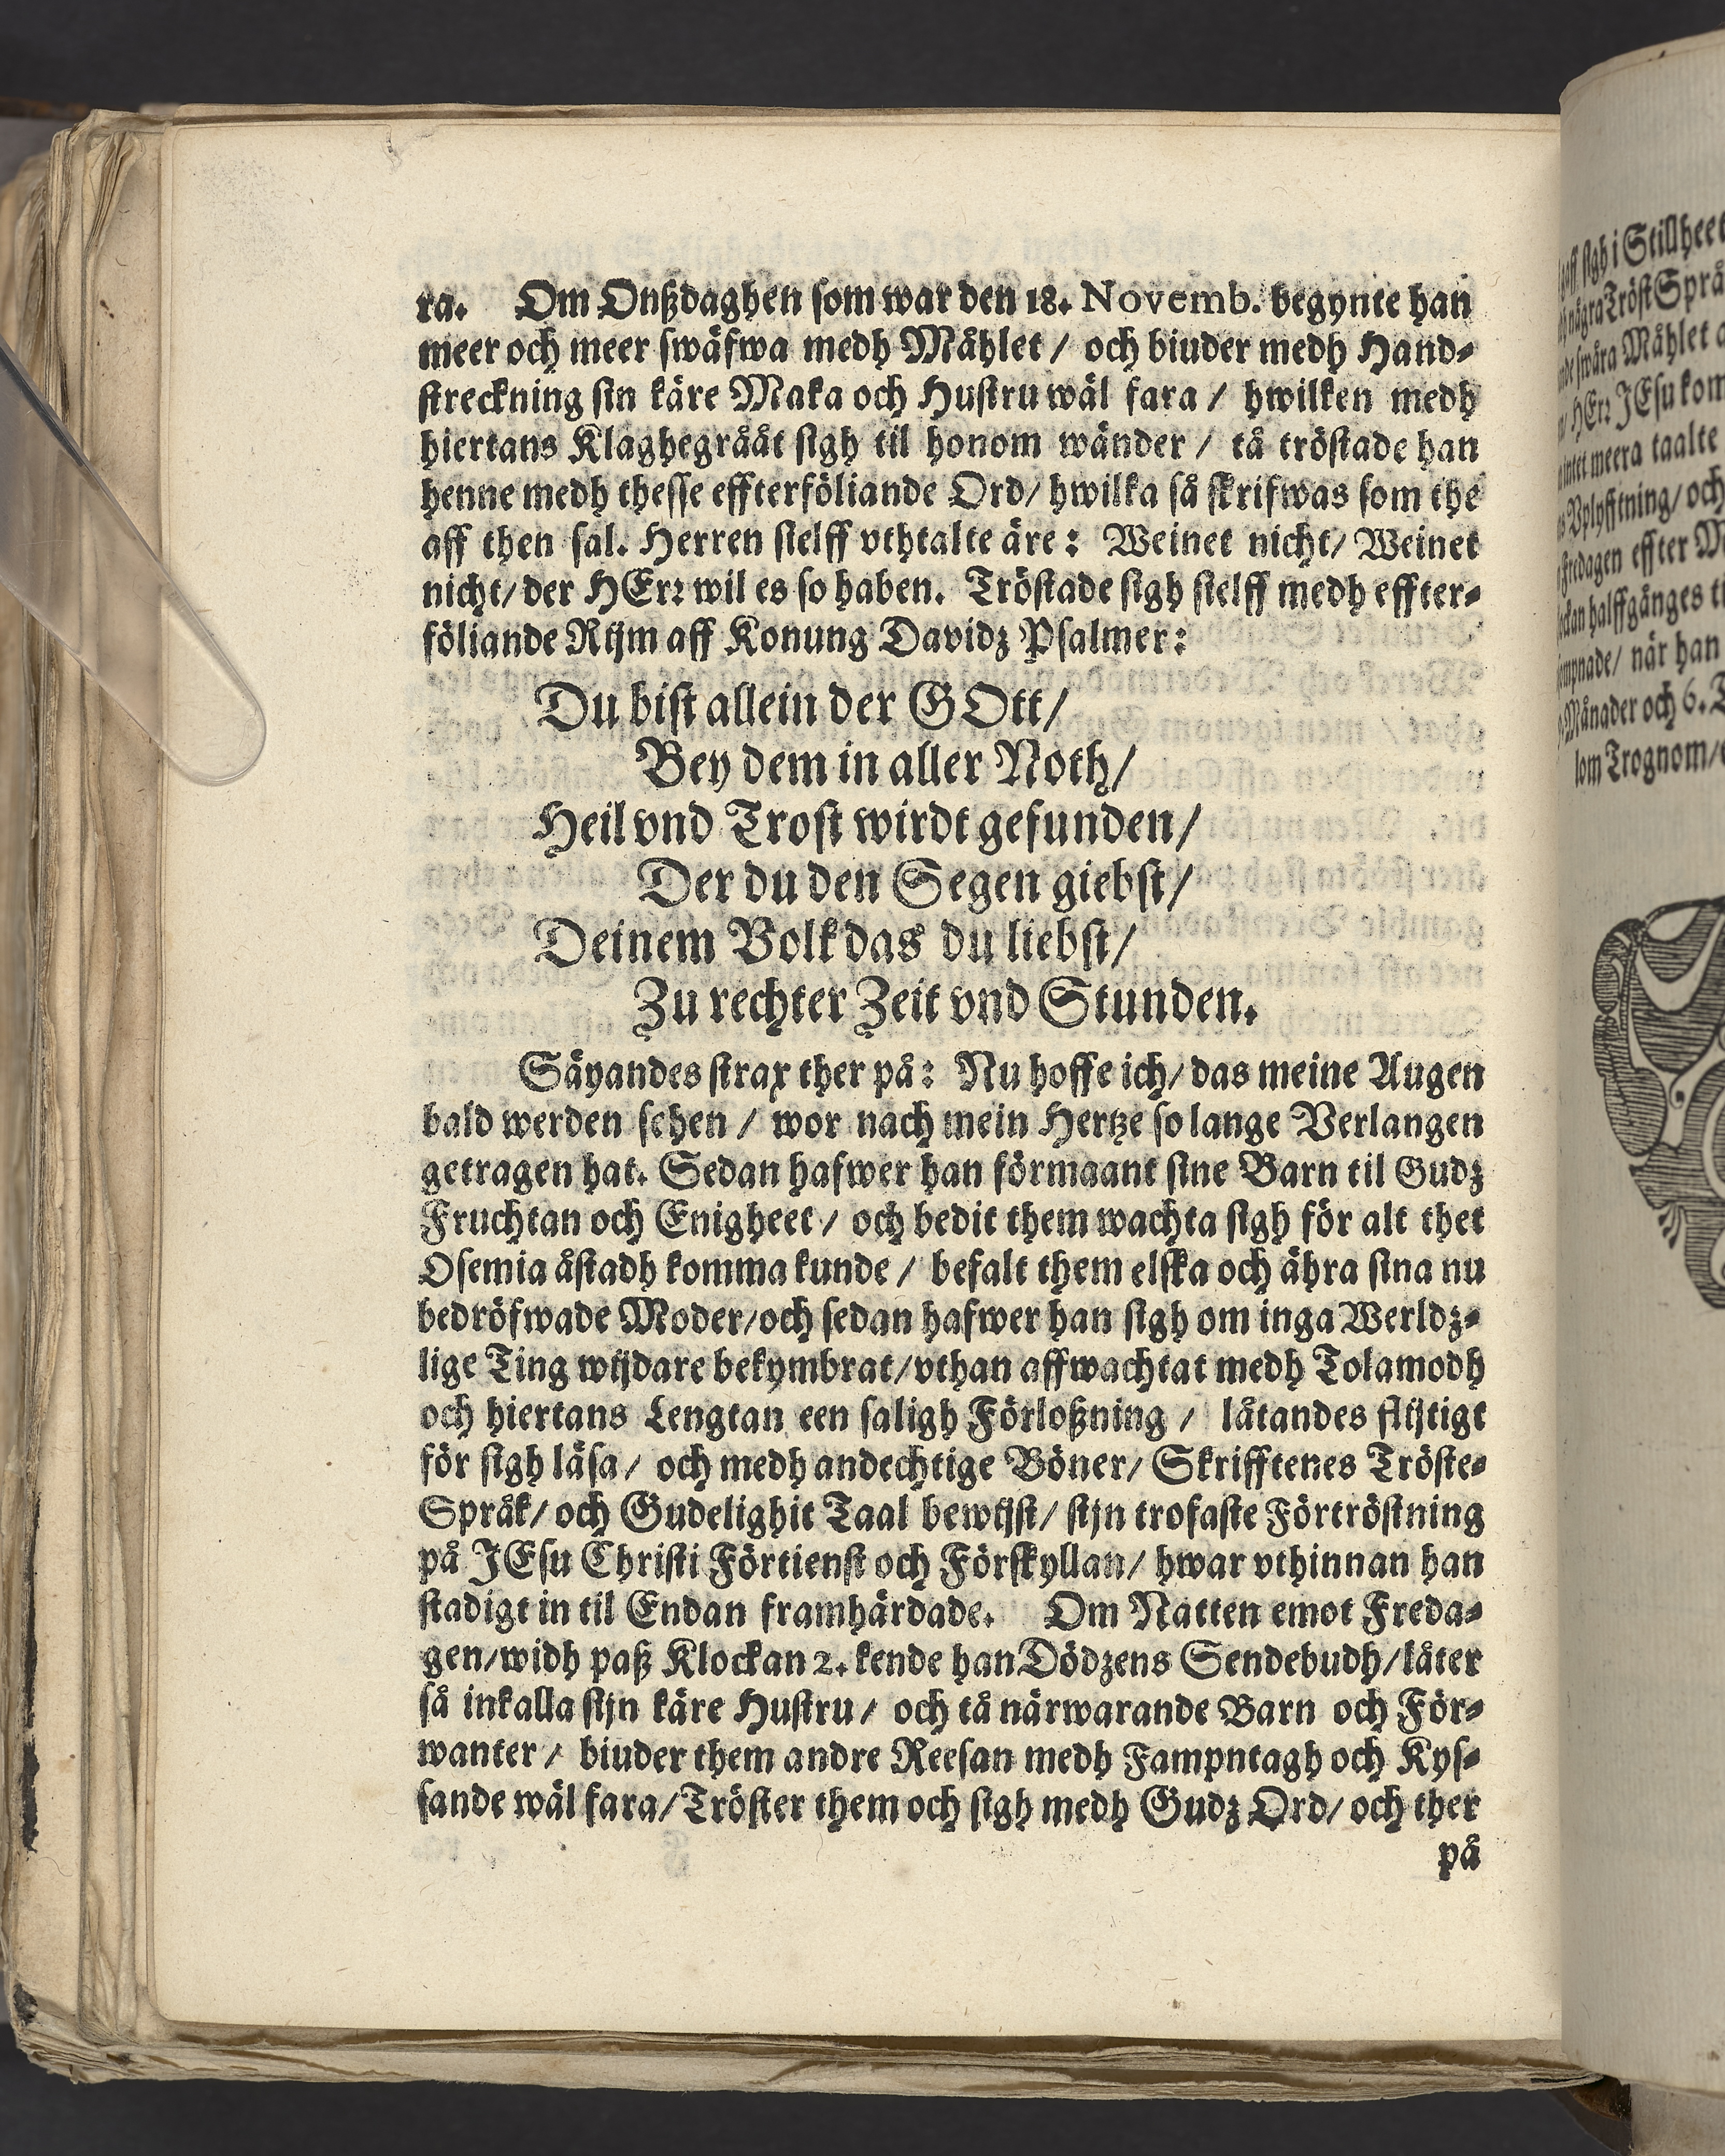 ra. Om Onßdaghen som war den 18. Novemb. begynte han
meer och meer swäfwa medh Måhlet / och biuder medh Hand-
streckning sin käre Maka och Hustru wäl fara / hwilken medh
hiertans Klaghegråät sigh til honom wänder / tå tröstade han
henne medh thesse effterföliande Ord/ hwilka så skrifwas som the
aff then sal. Herren sielff vthtalte äre: Weinet nicht/ Weinet
nicht/ der HErr wil es so haben. Tröstade sigh sielff medh effter-
föliande Rijm aff Konung Davidz Psalmer:
Du bist allein der GOtt/
Bey dem in aller Noth/
Heil vnd Trost wirdt gefunden/
Der du den Segen giebst/
Deinem Volk das du liebst/
Zu rechter Zeit vnd Stunden.
Säyandes strax ther på: Nu hoffe ich/ das meine Augen
bald werden sehen / wor nach mein Hertze so lange Verlangen
getragen hat. Sedan hafwer han förmaant sine Barn til Gudz
Fruchtan och Enigheet / och bedit them wachta sigh för alt thet
Osemia åstadh komma kunde / befalt them elska och ähra sina nu
bedröfwade Moder/och sedan hafwer han sigh om inga Werldz-
lige Ting wijdare bekymbrat/vthan affwachtat medh Tolamodh
och hiertans Lengtan een saligh Förloßning / låtandes flijtigt
för sigh läsa / och medh andechtige Böner/ Skrifftenes Tröste-
Språk/ och Gudelighit Taal bewijst/ sijn trofaste Förtröstning
på JEsu Christi Förtienst och Förskyllan/ hwar vthinnan han
stadigt in til Endan framhärdade. Om Natten emot Freda-
gen/widh paß Klockan 2. kende han Dödzens Sendebudh/låter
så inkalla sijn käre Hustru / och tå närwarande Barn och För-
wanter / biuder them andre Reesan medh Fampntagh och Kys-
sande wäl fara/Tröster them och sigh medh Gudz Ord/ och ther
på
sigh i Stillheet
några Tröst Språ
swåra Måhlet
HErr JEsu kom
meera taalte
Vplyfftning/ och
Fredagen effter
halffgånges
när han
Månader och 6.
Trognom/